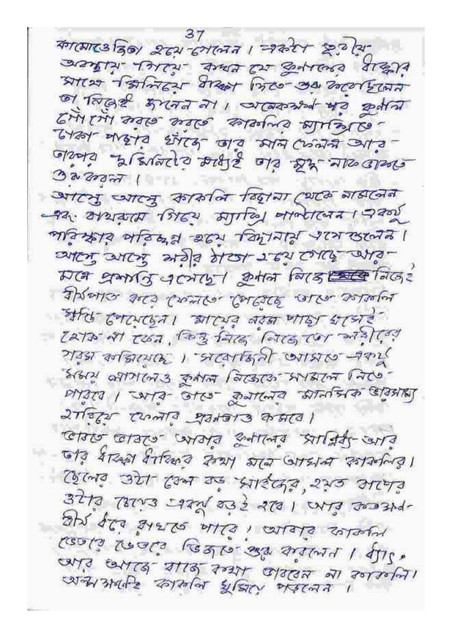 37
কামোত্তেজিতা হয়ে গেলেন। একটা
অবস্থায় গিয়ে কখন যে কুণালের ধাক্কার
সাথে মিলিয়ে ধাক্কা দিতে শুরু করেছিলেন
তা নিজেই জানেন না। অনেকক্ষণ পর কুণাল
গোঁ গোঁ করতে করতে কাকলির ম্যাক্সিতে
ঢাকা পাছার খাঁজে তার মাল ফেলল আর
তারপর দু মিনিটের মধ্যেই তার মৃদু নাক ডাকতে
শুরু করল।
আস্তে আস্তে কাকলি বিছানা থেকে নামলেন
এবং বাথরুমে গিয়ে ম্যাক্সি পাল্টালেন। একটু
পরিস্কার পরিচ্ছন্ন হয়ে বিছানায় এসে শুলেন।
আস্তে আস্তে শরীর ঠাণ্ডা হয়ে গেছে আর
মনে প্রশান্তি এসেছে। কুণাল নিজে নিজেই
বীর্যপাত করে ফেলতে পেরেছে তাতে কাকলি
শান্তি পেয়েছেন। মায়ের নরম পাছা ঘসেই
হোক না কেন, কিন্তু নিজে নিজে তো শরীরের
গরম কমিয়েছে। সরোজিনী আসতে একটু
সময় লাগলেও কুণাল নিজেকে সামলে নিতে
পারবে। আর তাতে কুণালের মানসিক ভারসাম্য
হারিয়ে ফেলার প্রবণতাও কমবে।
ভাবতে ভাবতে আবার কুণালের সান্নিধ্য আর
তার ধাক্কা ধাক্কির কথা মনে আসল কাকলির।
ছেলের ওটা বেশ বড় সাইজের, হয়ত বাপের
ওটার চেয়েও একটু বড়ই হবে। আর কতক্ষণ
বীর্য ধরে রাখতে পারে! আবার কাকলি
ভেতরে ভেতরে ভিজতে শুরু করলেন। ধ্যাৎ
আর আজে বাজে কথা ভাববেন না কাকলি।
অল্পক্ষণেই কাকলি ঘুমিয়ে পড়লেন।